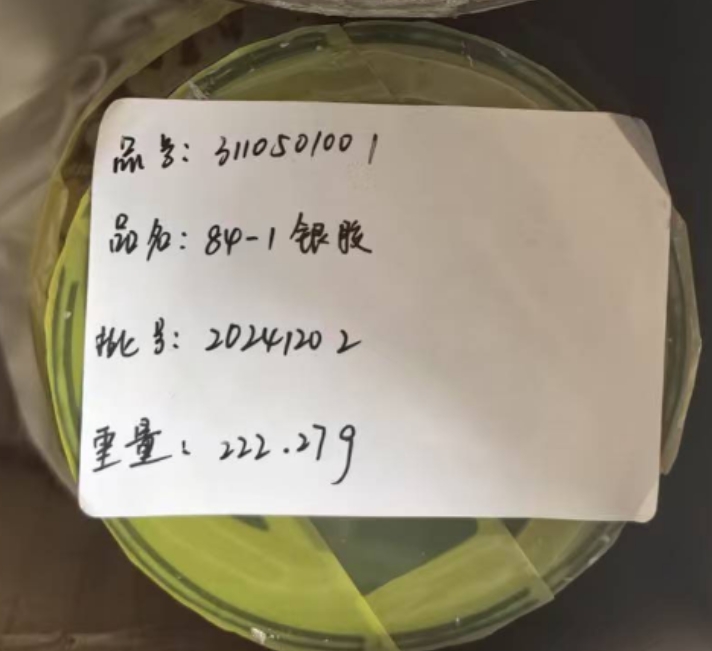 品号：3110501001
品名：84-1银胶
批号：20241202
重量：222.27g